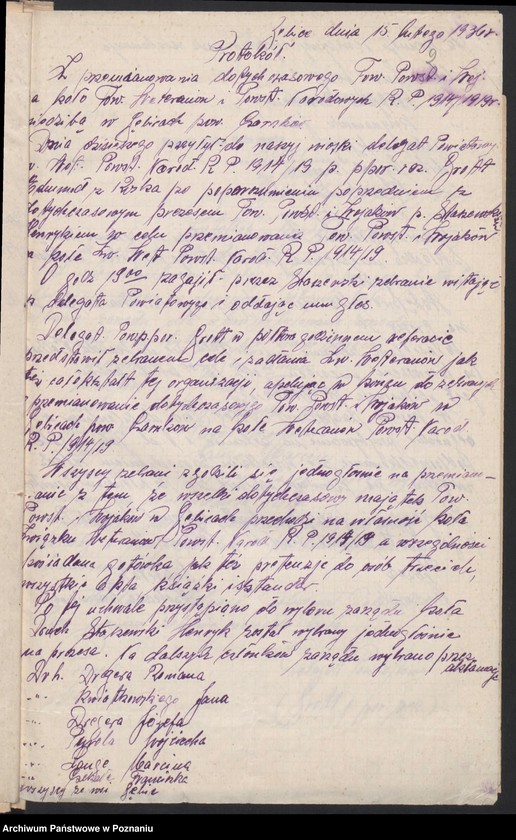 Gębice dnia 15 lutego 1936r.
9
Protokół.
Z przemianowania dotychczasowego Tow. Powst. i Woj.
na koło Tow. Weteranów i Powst. Narodowych R.P. 1914/1919r.
siedzibą w Gębicach pow. Czarnków
Dnia dzisiejszego przybył do naszej wioski delegat Powiatowy
Wet. Powst. Narod. R.P. 1914/19 p. ppor. rez. Grett
Edmund z po porozumieniu poprzedniem z
dotychczasowym prezesem Tow. Powst. i Wojaków p.
Henrykiem w celu przemianowania Tow. Powst. i Wojaków
na koło Zw. Wet. Powst. Narod. R.P. 1914/19.
O godz 19 00 zagaił prezes Staszewski zebranie witając
Delegata Powiatowego i oddając mu głos.
Delegat ppor. Grett w półtoragodzinnem referacie
przedstawił zebranem cele i zadania Zw. Weteranów jak
też całokształt tej organizacji, apelując w końcu do zebranych
o przemianowanie dotychczasowego Tow. Powst. i Wojaków w
Gębicach pow. Czarnków na koło Weteranów Powst. Narod.
R.P. 1914/19
Wszyscy zebrani zgodzili się jednogłośnie na przemian-
owanie z tem, że wszelki dotychczasowy majątek Tow.
Powst. i Wojaków w Gębicach przechodzi na własność koła
Związku Weteranów Powst. Narod. R.P. 1914/19 a w szczególności
posiadana gotówka jak też pretensje do osób trzecich,
wszystkie akta książki i sztandar.
Po tej uchwale przystąpiono do wyboru zarządu koła
Druh Staszewski Henryk został wybrany jednogłośnie
na prezesa. Na dalszych członków zarządu wybrano przez
aklamację
Drh. Dregera Romana
-"- Kwiatkowskiego Jana
-"- Dregera Józefa
-"- Wojciecha
-"- Lange Marcina
-"- Franciszka
wszyscy ze wsi Gębic
Archiwum Państwowe w Poznaniu